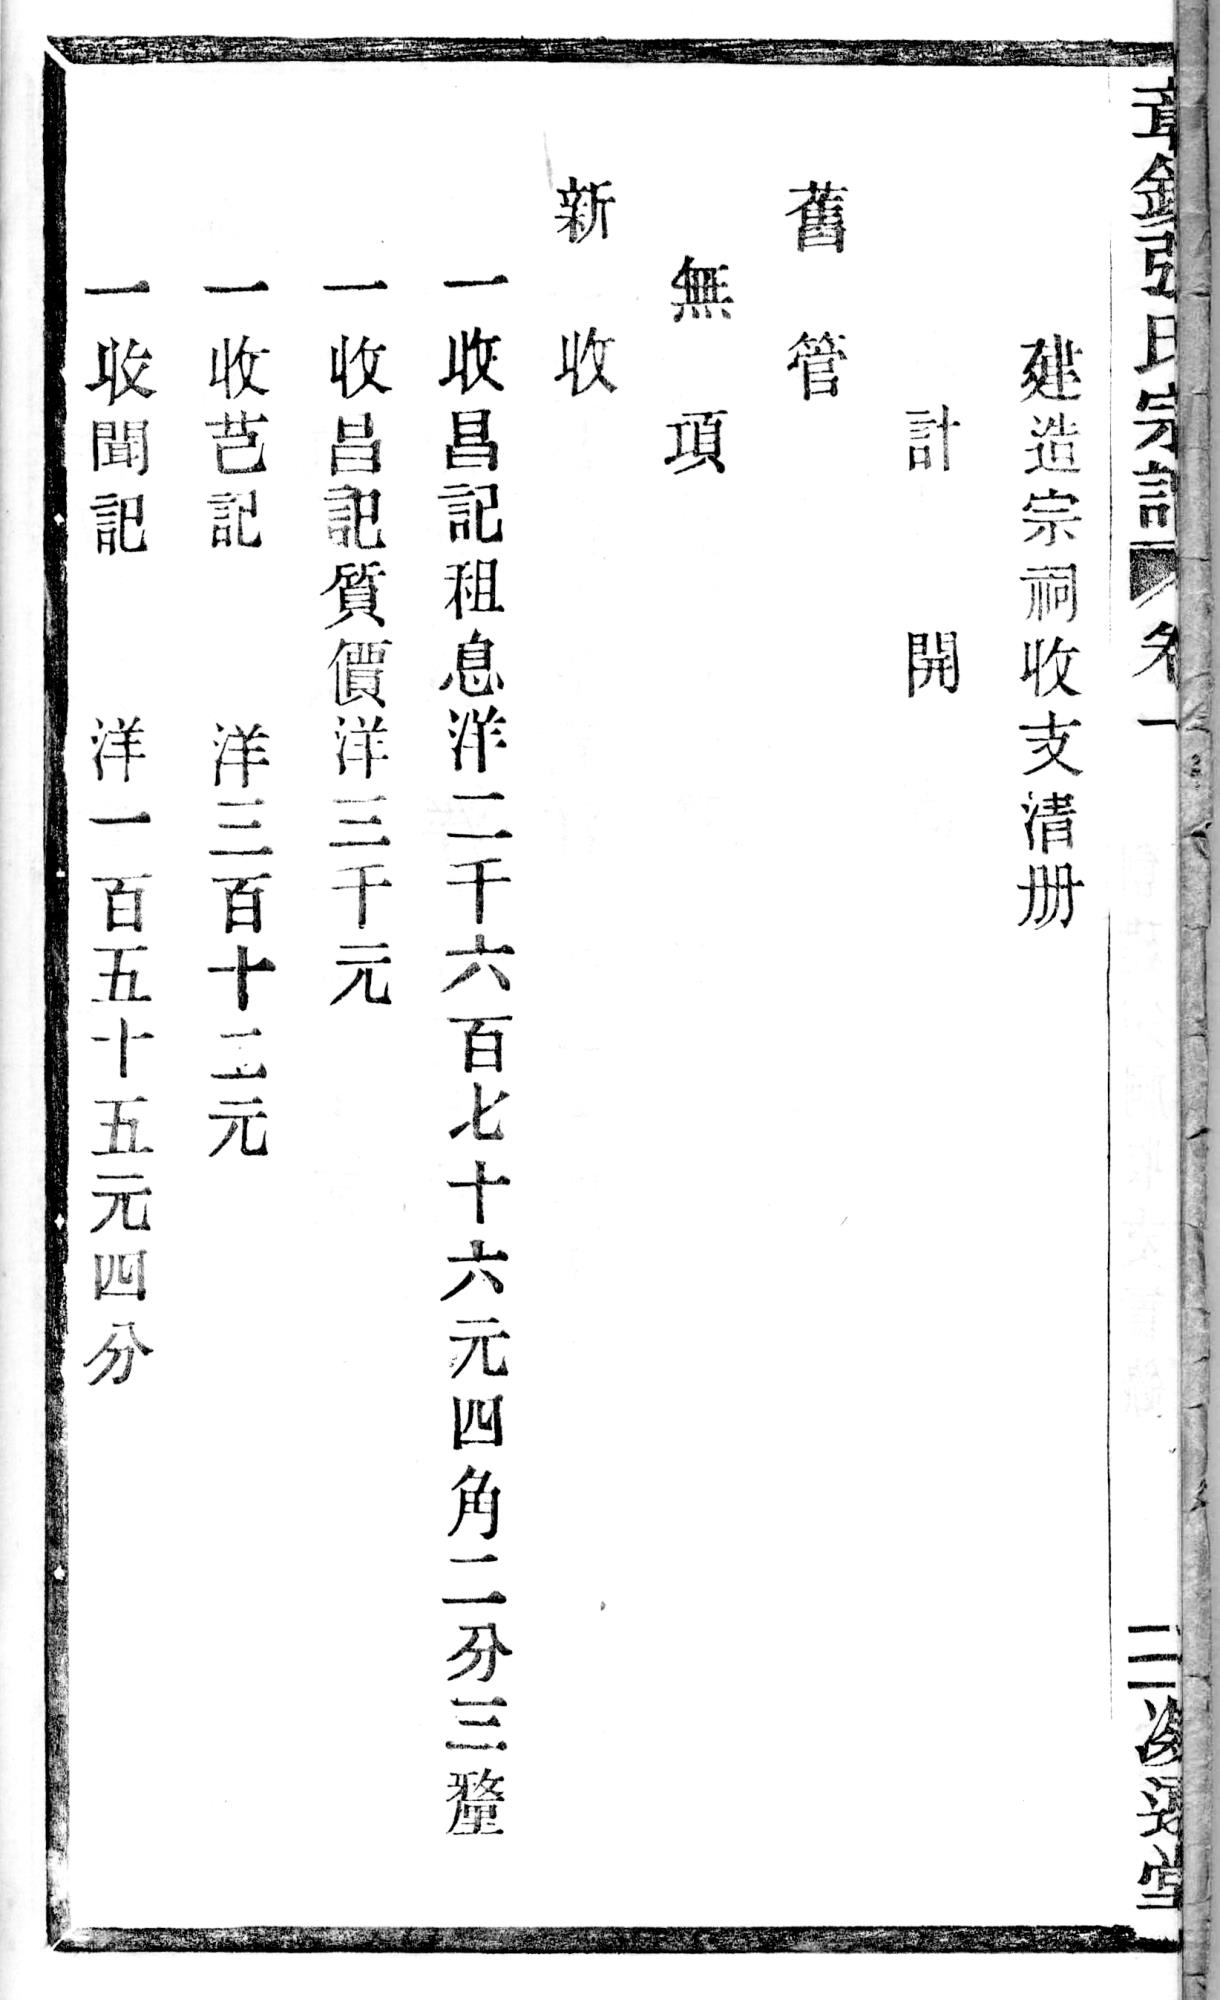 章鎮張氏宗譜 卷一 三 追遠堂
建造宗祠收支清册
計開
舊管
無項
新收
一收昌記租息洋二千六百七十六元四角二分三釐
一收昌記質價洋三千元
一收芑記 洋三百十二元
一收聞記 洋一百五十五元四分